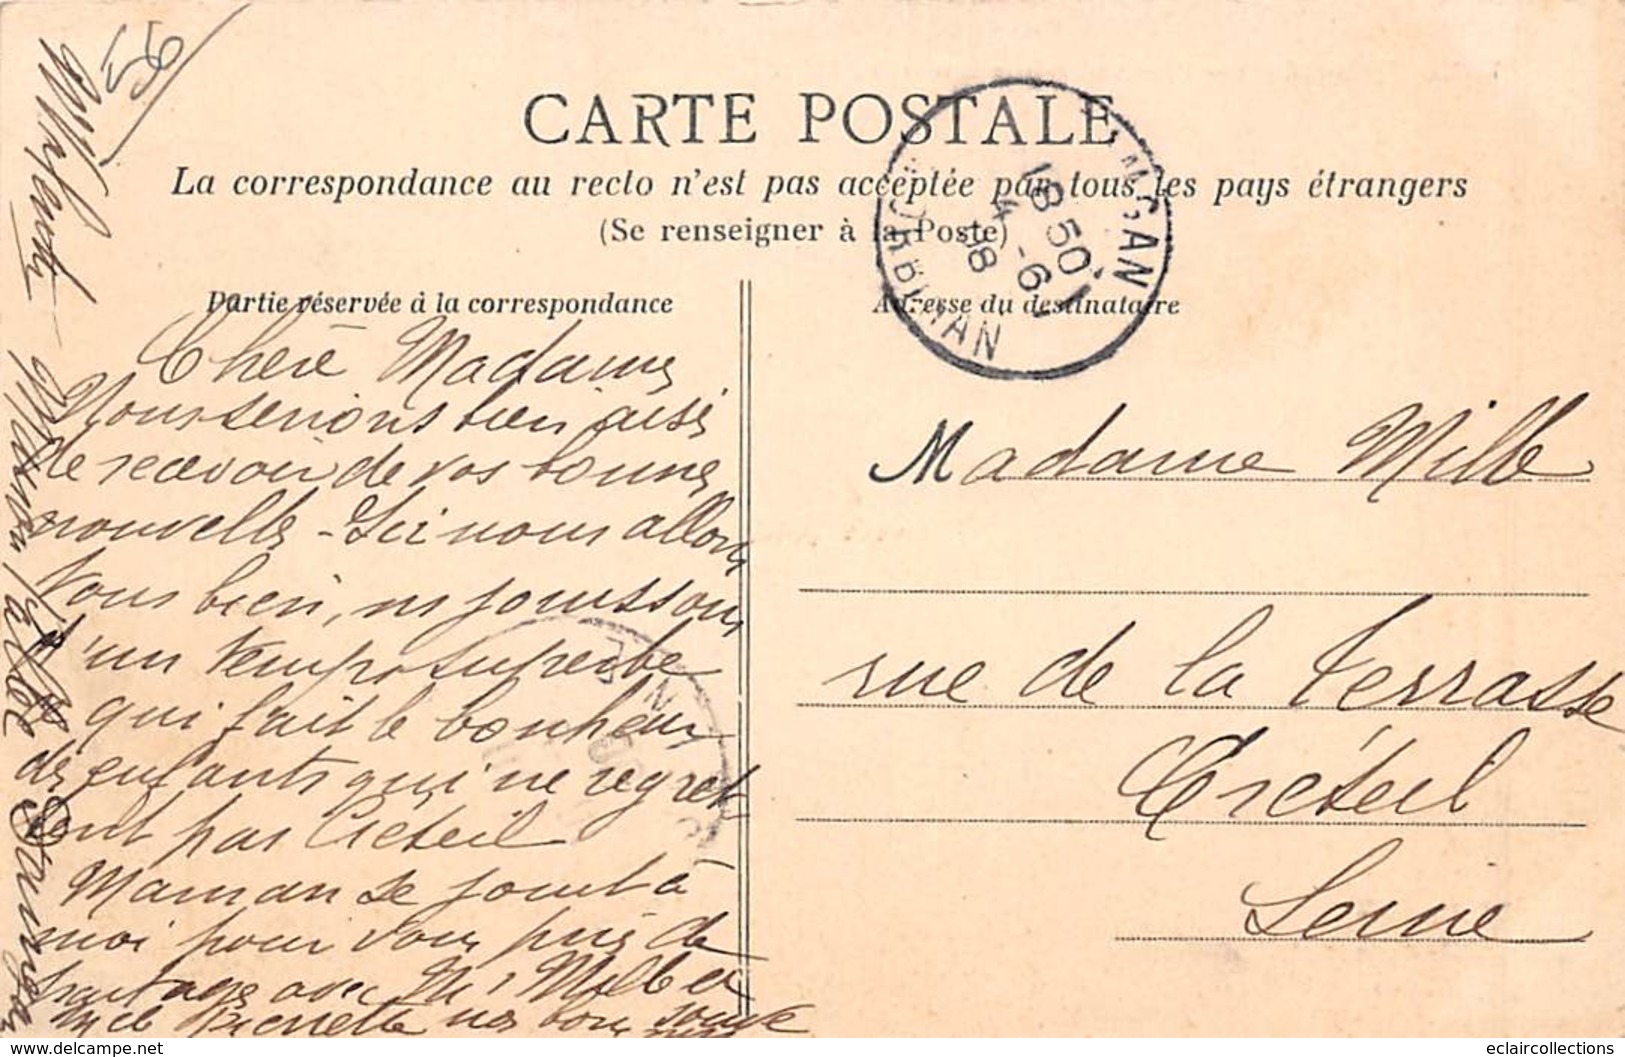 56
CARTE POSTALE
La correspondance au recto n'est pas acceptée par tous les pays étrangers
(Se renseigner à la Poste)
Partie réservée à la correspondance
Adresse du destinataire
18 50
4 -6
08
MORBIHAN
Chère Madame
Nous serions bien aise
de recevoir de vos bonnes
nouvelles - Ici nous allons
tous bien, ns jouissons
d'un temps superbe
qui fait le bonheur
des enfants qui ne regret
tent pas Créteil
Maman se joint à
moi pour vous prier de
partager avec Mr Mille et
Melle Pierrette nos bons souve
nirs
Madame Mille
rue de la Terrasse
Créteil
Seine
eclaircollections